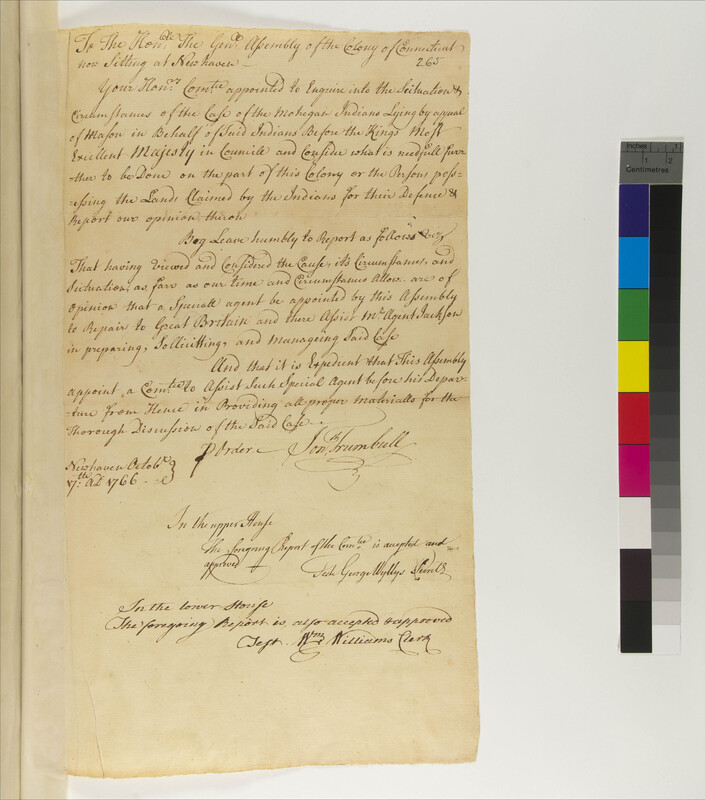 To The Hon:ble The Gen:ll Assembly of the Colony of Connecticut
now Sitting at Newhaven
265
Your Hon:rs Com:tee appointed to Enquire into the Scituation &
Circumstances of the Case of the Mohegan Indians Lying by appeal
of Mason in Behalf of said Indians Before the Kings Most
Excellent Majesty in Councill and Consider what is needfull fur-
-ther to be Done on the part of this Colony or the Persons poss-
-essing the Lands Claimed by the Indians for their Defence &
Report our opinion thereon
Beg Leave humbly to Report as follows
That having Viewed and Considered the Cause, its Circumstances, and
Scituation, as far as our time and Circumstances Allow are of
opinion that a Speciall agent be appointed by this Assembly
to Repair to Great Britain and there Assist Mr. Agent Jackson
in preparing, Sollicitting, and manageing Said Case
And that it is Expedient that This Assembly
appoint a Com:tee to Assist Such Special Agent before his Depar-
-ture from Hence in Providing all proper materialls for the
Thorough Discussion of the Said Case.
P Order Jon:th Trumbull
Newhaven Octob:r
17:th AD 1766
In the upper House
The foregoing Report of the Com:tee is accepted and
approved
Test George Wyllys Secret:y
In the lower House
The foregoing Report is also accepted & approved
Test Wm Williams Clerk
Inches 1
1 2
Centimetres